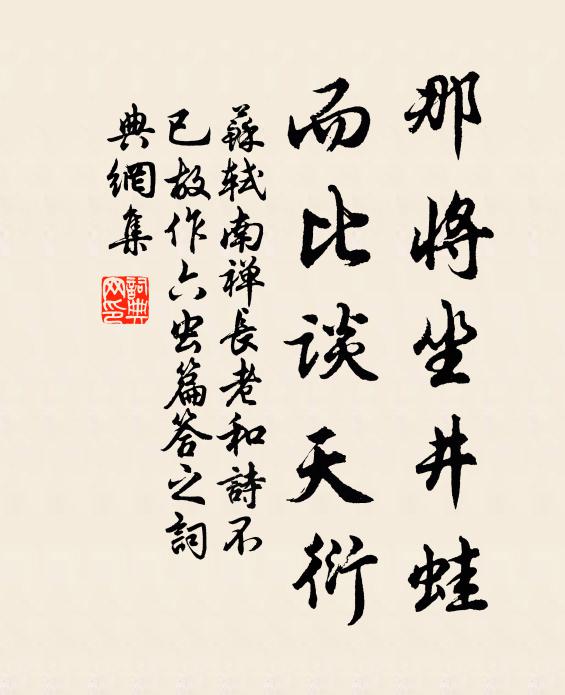 那將坐井蛙
而比談天衍
蘇軾南禪長老和詩不
已故作六虫篇答之詞
典網集
詞典网印